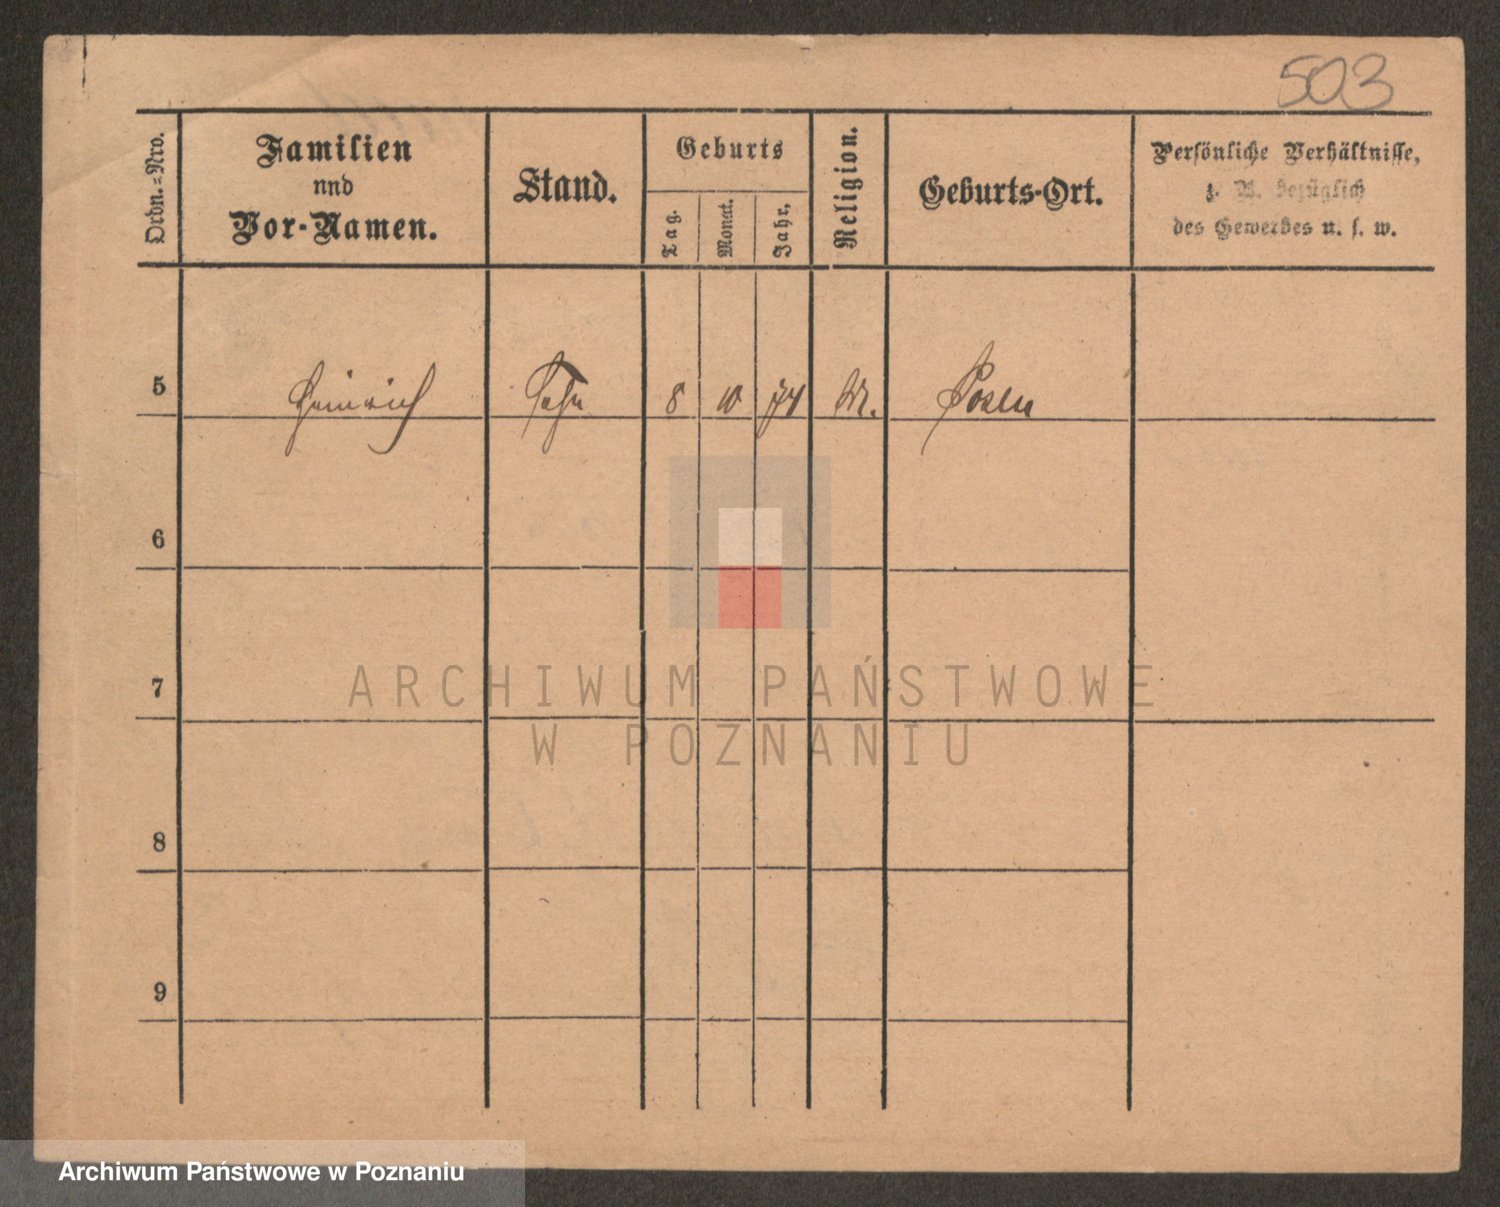 503
Ordn.=Nro.
Familien
nnd
Vor-Namen.
Stand.
Geburts
Tag.
Monat.
Jahr.
Religion.
Geburts-Ort.
Persönliche Verhältnisse,
z. B. bezüglich
des Gewerbes u. s. w.
5 Heinrich Sohn 8 10 74 Posen
6
7
8
9
ARCHIWUM PAŃSTWOWE
W POZNANIU
Archiwum Państwowe w Poznaniu